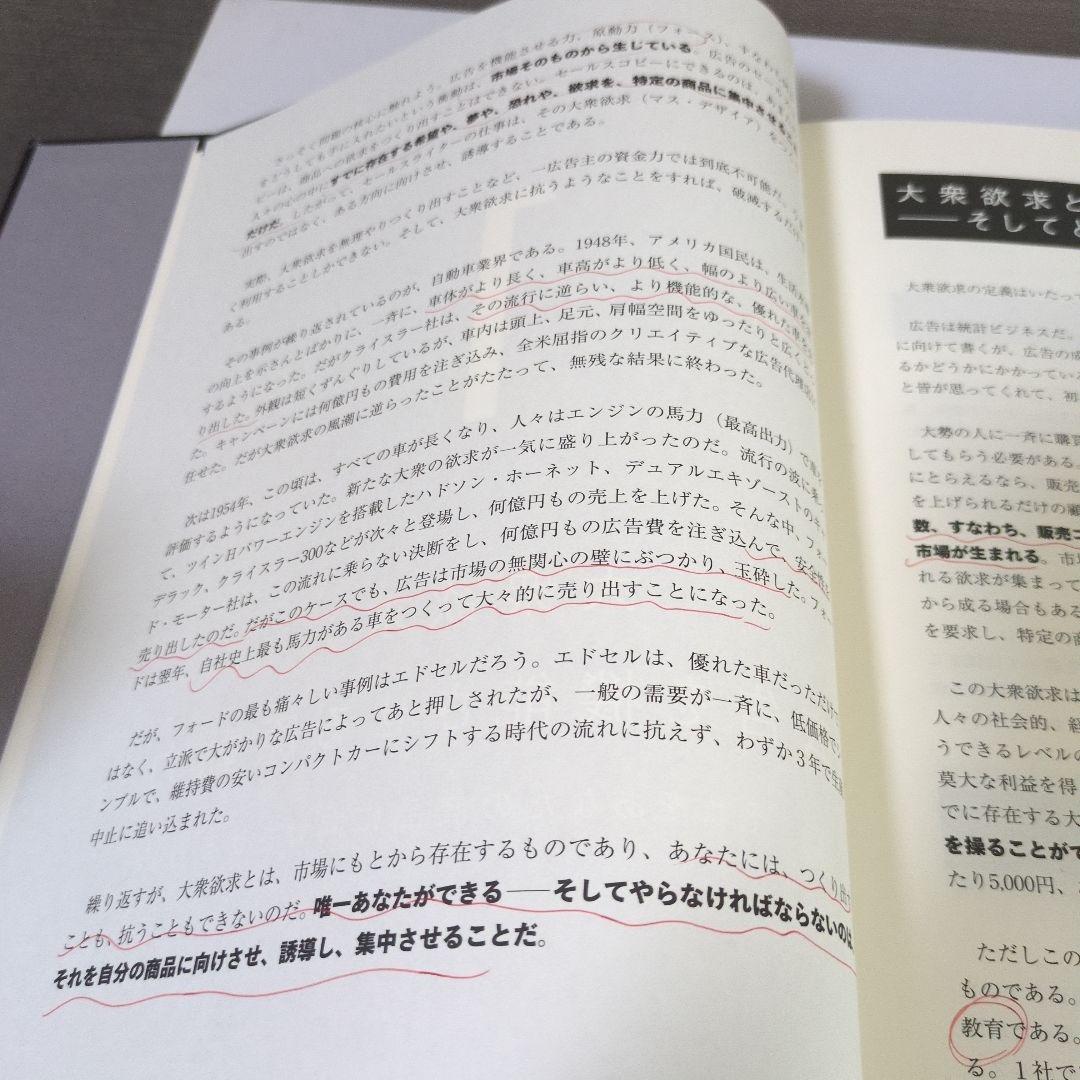 さっそく問題の核心に触れよう。広告を機能させる力、原動力(フォース)、すなわち
をどうしても手に入れたいという衝動は、市場そのものから生じている。広告のセ
ピーは、商品への欲求をつくり出すことはできない。セールスコピーにできるのは、
人々の心の中にすでに存在する希望や、夢や、恐れや、欲求を、特定の商品に集中させる
だけだ。したがって、セールスライターの仕事は、その大衆欲求(マス・デザイア)を
出すのではなく、ある方向に向けさせ、誘導することである。
実際、大衆欲求を無理やりつくり出すことなど、一広告主の資金力では到底不可能だ。
く利用することしかできない。そして、大衆欲求に抗うようなことをすれば、破滅するだけ
ある。
その事例が繰り返されているのが、自動車業界である。1948年、アメリカ国民は、生活
の向上を示さんとばかりに、一斉に、車体がより長く、車高がより低く、幅のより広い車を
するようになった。だがクライスラー社は、その流行に逆らい、より機能的な、優れた車を
り出した。外観は短くずんぐりしているが、車内は頭上、足元、肩幅空間をゆったりと広く
た。キャンペーンには何億円もの費用を注ぎ込み、全米屈指のクリエイティブな広告代理店に
任せた。だが大衆欲求の風潮に逆らったことがたたって、無残な結果に終わった。
次は1954年、この頃は、すべての車が長くなり、人々はエンジンの馬力(最高出力)で車を
評価するようになっていた。新たな大衆の欲求が一気に盛り上がったのだ。流行の波に乗
て、ツインHパワーエンジンを搭載したハドソン・ホーネット、デュアルエキゾーストのキャ
デラック、クライスラー300などが次々と登場し、何億円もの売上を上げた。そんな中、フォー
ド・モーター社は、この流れに乗らない決断をし、何億円もの広告費を注ぎ込んで、安全性を
売り出したのだ。だがこのケースでも、広告は市場の無関心の壁にぶつかり、玉砕した。フォー
ドは翌年、自社史上最も馬力がある車をつくって大々的に売り出すことになった。
だが、フォードの最も痛々しい事例はエドセルだろう。エドセルは、優れた車だっただけで
はなく、立派で大がかりな広告によってあと押しされたが、一般の需要が一斉に、低価格でシ
ンプルで、維持費の安いコンパクトカーにシフトする時代の流れに抗えず、わずか3年で生産
中止に追い込まれた。
繰り返すが、大衆欲求とは、市場にもとから存在するものであり、あなたには、つくり出す
ことも、抗うこともできないのだ。唯一あなたができる――そしてやらなければならないのは、
それを自分の商品に向けさせ、誘導し、集中させることだ。
大衆欲求と
――そしてど
大衆欲求の定義はいたって
広告は統計ビジネスだ。
に向けて書くが、広告の成
るかどうかにかかってい
と皆が思ってくれて、初
大勢の人に一斉に購買
してもらう必要がある。
にとらえるなら、販売
を上げられるだけの顧
数、すなわち、販売コ
市場が生まれる。市
れる欲求が集まって
から成る場合もある
を要求し、特定の商
この大衆欲求は
人々の社会的、経
うできるレベルの
莫大な利益を得
でに存在する大
を操ることがで
たり5,000円、
ただしこの
ものである。
教育である。
る。1社で